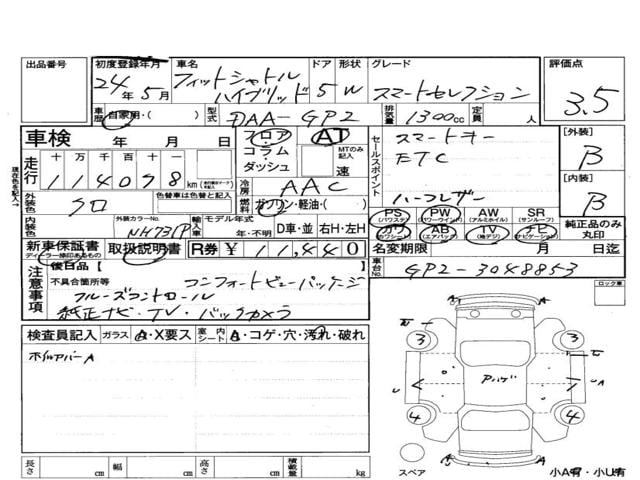 出品番号 初度登録年月 車名 ドア 形状 グレード 評価点
24年 5月 フィットシャトル ハイブリッド 5 W スマートセレクション 3.5
車歴 自家用・( ) 型式 DAA-GP2 排気量 1300cc 定員 人
車検 年 月 日 フロア AT セールスポイント スマートキー [外装]
走行 十 万 千 百 十 一 コラム MTのみ記入 ETC B
114098 km ダッシュ 速
冷房 AAC ハーフレザー [内装]
外装色 クロ 色替車は色替と記入 燃料 ガソリン・軽油・( ) B
PS (パワステ) PW (パワーウインドウ) AW (アルミホイル) SR (サンルーフ)
内装色 外装カラーNo. NH731P 輸入車 モデル年式 年・不明 D車・並 右H・左H カワ AB (エアバッグ) TV (地デジ) ナビ (ナビゲーション) 純正品のみ丸印
新車保証書 ディーラー捺印あるもの 取扱説明書 R券 ¥11,440 名変期限 月 日迄
注意事項 後日品【 】 車台No. GP2-3048853
不具合箇所等 コンフォートビューパッケージ ロック車
クルーズコントロール
純正ナビ・TV・バックカメラ
検査員記入 ガラス A・X要ス 室内シート A・コゲ・穴・汚れ・破れ
ホイルカバーA
3 3
Pハゲ
U UA
4 4
長さ cm 幅 cm 高さ cm 積載量 kg
スペア 小A有・小U有